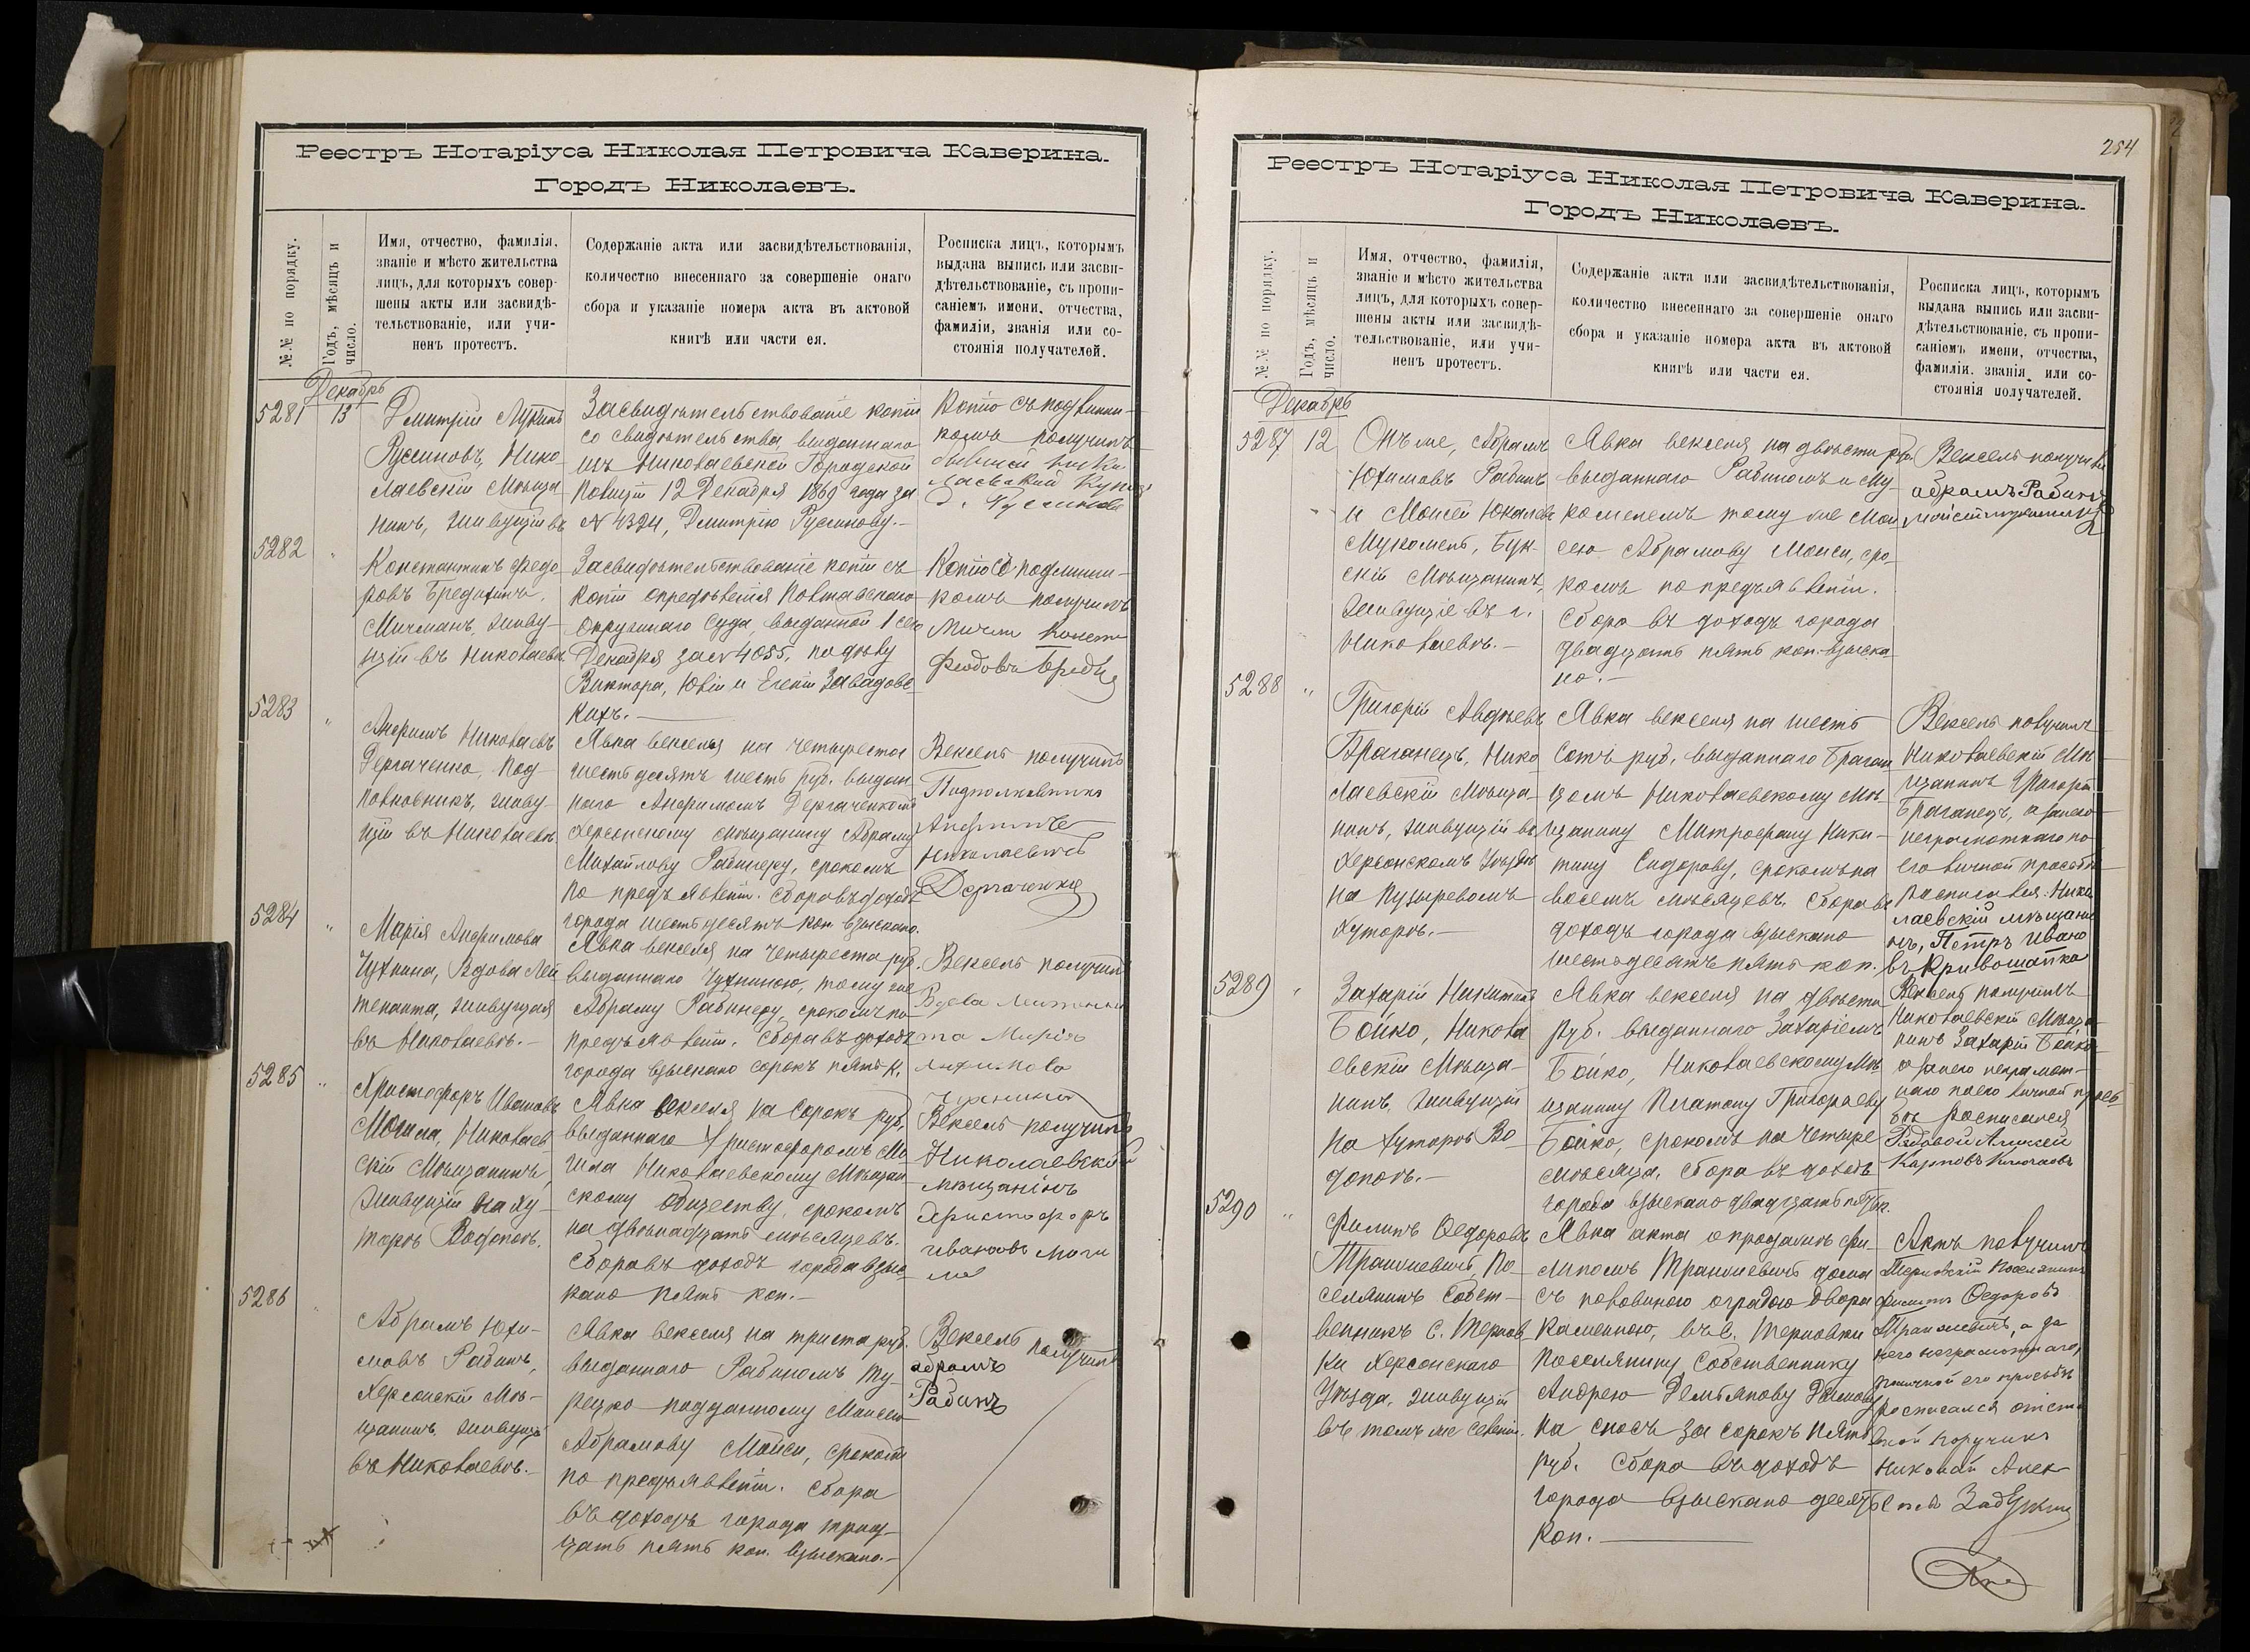 Реестръ Нотаріуса Николая Петровича Каверина.
Городъ Николаевъ.
№№ по порядку.
Годъ, мѣсяцъ и число.
Имя, отчество, фамилія,
званіе и мѣсто жительства
лицъ, для которыхъ совер-
шены акты или засвидѣ-
тельствованіе, или учи-
ненъ протестъ.
Содержаніе акта или засвидѣтельствованія,
количество внесеннаго за совершеніе онаго
сбора и указаніе номера акта въ актовой
книгѣ или части ея.
Росписка лицъ, которымъ
выдана выпись или засви-
дѣтельствованіе, съ пропи-
саніемъ имени, отчества,
фамиліи, званія или со-
стоянія получателей.
Декабрь
5281
13
Дмитрій Лукинъ
Руссиновъ, Нико-
лаевскій Мѣща-
нинъ, живущій въ
Засвидѣтельствованіе копіи
со свидѣтельства, выданнаго
изъ Николаевской Городской
Полиціи 12 Декабря 1869 года за
№ 4324, Дмитрію Русинову.-
Копію съ подлинни-
комъ получилъ
5282
"
Константинъ Федо-
ровъ Бредихинъ,
Мичманъ, живу-
щій въ Николаевѣ
Засвидѣтельствованіе копіи съ
копіи опредѣленія Полтавскаго
Окружнаго Суда, выданной 1 сего
Декабря за № 4055, по дѣлу
Виктора, Юліи и Евгеніи Завадов-
скихъ.-
Копію съ подлинни-
комъ получилъ
5283
"
Анфимъ Николаевъ
Дергаченко, Под-
полковникъ, живу-
щій въ Николаевѣ
Явка векселя на четыреста
шестьдесятъ шесть руб. выдан-
наго Анфимомъ Дергаченкомъ
Херсонскому мѣщанину Абраму
Михайлову Рабинеру, срокомъ
по предъявленіи. Сбора въ доходъ
города шестьдесятъ коп. взыскано.
Вексель получилъ
Подполковникъ
Анфимъ
Николаевичъ
Дергаченко
5284
"
Марія Анфимова
Чухнина, Вдова Лей-
тенанта, живущая
въ Николаевѣ.-
Явка векселя на четыреста руб.
выданнаго Чухниною, тому же
Абраму Рабинеру, срокомъ по
предъявленіи. Сбора въ доходъ
города взыскано сорокъ пять к.
Вексель получила
Вдова Лейтенан-
та Марія
5285
"
Христофоръ Ивановъ
Могила, Николаев-
скій Мѣщанинъ,
живущій на ху-
торѣ Водопоѣ.
Явка векселя на сорокъ руб,
выданнаго Христофоромъ Мо-
гила Николаевскому Мѣщан-
скому обществу, срокомъ
на двѣнадцать мѣсяцевъ.
Сбора въ доходъ города взыс-
кано пять коп.-
Вексель получилъ
Николаевскій
мѣщанінъ
Христофоръ
Ивановъ Моги
ла
5286
"
Абрамъ Юхи-
мовъ Рабинъ,
Херсонскій Мѣ-
щанинъ, живущій
въ Николаевѣ.-
Явка векселя на триста руб.
выданнаго Рабиномъ Ту-
рецко подданному Моисею
Абрамову Моиси, срокомъ
по предъявленіи. Сбора
въ доходъ города трид-
цать пять коп. взыскано.-
Вексель получилъ
абрамъ
Рабинъ
254
Реестръ Нотаріуса Николая Петровича Каверина.
Городъ Николаевъ.
№№ по порядку.
Годъ, мѣсяцъ и число.
Имя, отчество, фамилія,
званіе и мѣсто жительства
лицъ, для которыхъ совер-
шены акты или засвидѣ-
тельствованіе, или учи-
ненъ протестъ.
Содержаніе акта или засвидѣтельствованія,
количество внесеннаго за совершеніе онаго
сбора и указаніе номера акта въ актовой
книгѣ или части ея.
Росписка лицъ, которымъ
выдана выпись или засви-
дѣтельствованіе, съ пропи-
саніемъ имени, отчества,
фамиліи, званія или со-
стоянія получателей.
Декабрь
5287
12
Онъ же, Абрамъ
Юхимовъ Рабинъ
и Моисей Юкелевъ
Мукомель, Буж-
скій Мѣщанинъ,
живущіе въ г.
Николаевѣ.-
Явка векселя на двѣсти руб
выданнаго Рабиномъ и Му-
комелемъ тому же Мои
сею Абрамову Моиси, сро-
комъ по предъявленіи.
Сбора въ доходъ города
двадцать пять коп. взыска-
но.-
Вексель получили
абрамъ Рабинъ
5288
"
Григорій Авдѣевъ
Браганецъ, Нико-
лаевскій Мѣща-
нинъ, живущій въ
Херсонскомъ Уѣздѣ
на Пузыревомъ
хуторѣ.-
Явка векселя на шесть
сотъ руб, выданнаго Браган-
цомъ Николаевскому Мѣ-
щанину Митрофану Ники-
тину Сидорову, срокомъ на
восемь мѣсяцевъ. Сбора въ
доходъ города взыскано
шестьдесятъ пять коп.
Вексель получилъ
Николаевскій Мѣ-
щанинъ Григорій
Браганецъ, а за него
неграмотнаго по
его личной просьбѣ
Расписался Нико
лаевскій мѣщани
нъ, Петръ Ивано
въ Кривошапка
5289
"
Захарій Никитинъ
Бойко, Никола-
евскій Мѣща-
нинъ, живущій
на хуторѣ Во-
допоѣ.-
Явка векселя на двѣсти
руб. выданнаго Захаріемъ
Бойко, Николаевскому Мѣ-
щанину Платону Григорьеву
Бойко, срокомъ на четыре
мѣсяца, сбора въ доходъ
города взыскано двадцать пять к.
Вексель получилъ
Николаевскій Мѣща-
нинъ Захарій Бойко
а за него неграмот-
наго по его личной прось-
бѣ росписался
Рядовой Алексей
Карповъ
5290
"
Филипъ Федоровъ
Трашкевичъ, По-
селянинъ Собст-
венникъ С. Тернов-
ки Херсонскаго
Уѣзда, живущій
въ томъ же селеніи.
Явка акта о продажѣ Фи-
липомъ Трашкевичъ дома
съ половиною оградою двора
Каменною, въ с. Терновки
поселянину Собственнику
Андрею Демьянову
на сносъ за сорокъ пять
руб. Сбора въ доходъ
города взыскано десять
коп.-
Актъ получилъ
Терновскій Поселянинъ
Филипъ Федоровъ
Трашкевичъ, а за
него неграмотнаго,
по личной его просьбѣ
росписался отста
вной поручикъ
Николай Алек